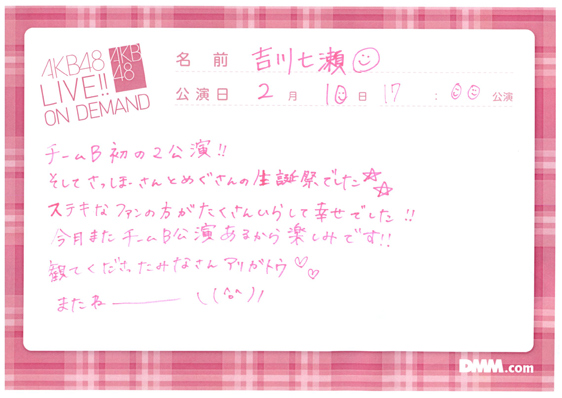 AKB48
LIVE!!
ON DEMAND
AKB
48
名前 吉川七瀬
公演日 2月10日17:00公演
チームB初の2公演!!
そしてさっほーさんとめぐさんの生誕祭でした☆☆
ステキなファンの方がたくさんいらして幸せでした!!
今月またチームB公演あるから楽しみです!!
観てくださったみなさんアリガトウ♡♡
またねー \(^o^)/
DMM.com